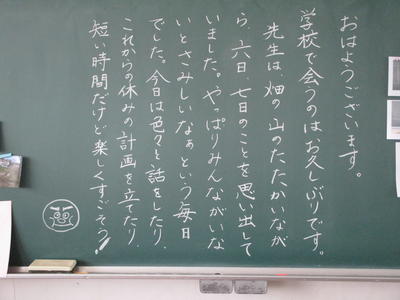 おはようございます。
学校で会うのはお久しぶりです。
先生は、畑の山のたたかいなが
ら、六日、七日のことを思い出して
いました。やっぱりみんながいな
いとさみしいなぁという毎日
でした。今日は色々と話をしたり、
これからの休みの計画を立てたり、
短い時間だけど楽しくすごそう!